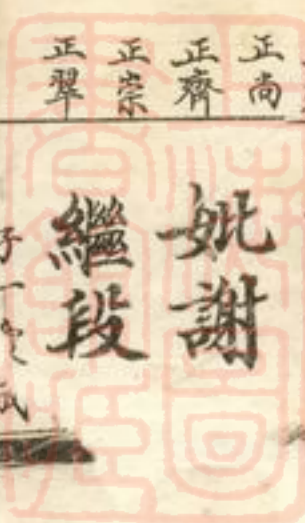 正尚
正齊
正崇
正翠
妣謝
繼段
子一